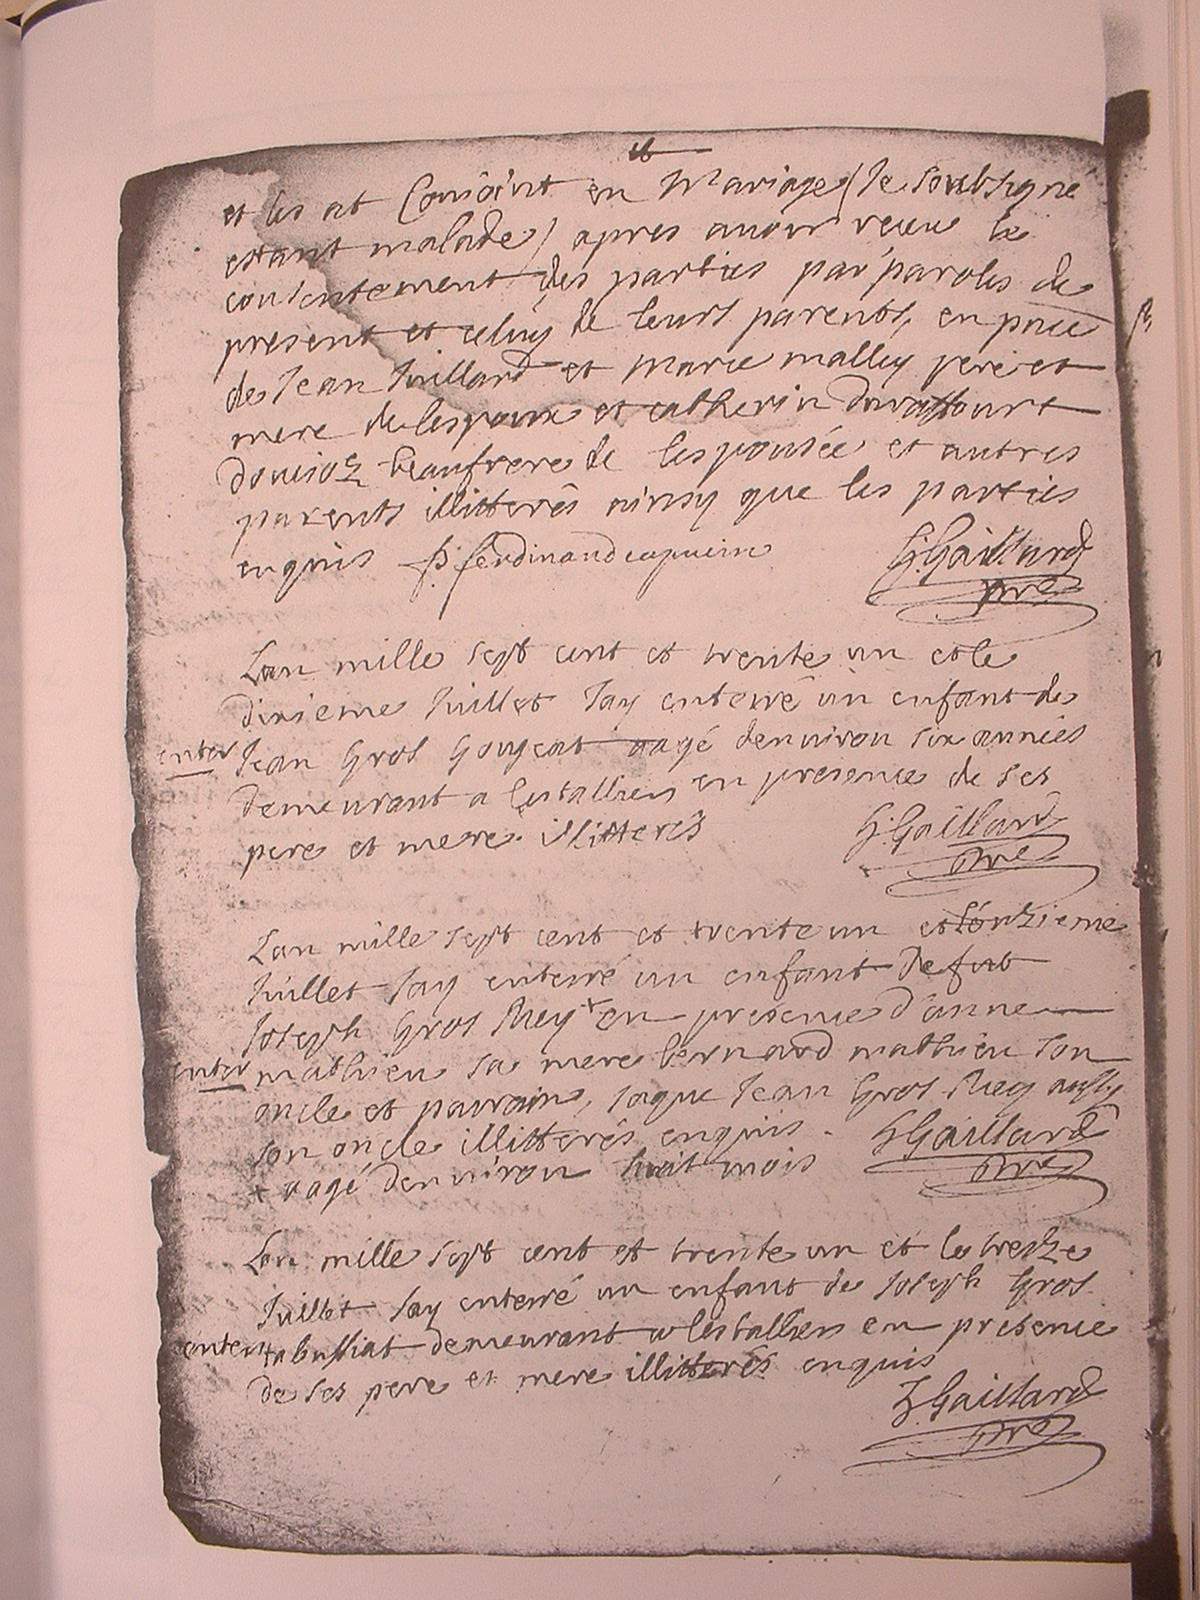 et les at Conioint en Mariage (Ie soubsigné
estant malade) apres auoir receu le
consentement des parties par paroles de
present et celuy de leurs parents, en pnce
de Jean Juillard et Marie malley pere et
mere de lespoux et catherin
beaufrere de lespousée et autres
parents illitterés ainsy que les parties
enquis P. ferdinand capucin G. Gaillard
ptre
Lan mille sept cent et trente un et le
dixieme Juillet Jay enterré un enfant de
enter Jean Gros Gougeat aagé denuiron six années
demeurant a lestallien en presence de ses
pere et mere illitterés G. Gaillard
ptre
Lan mille sept cent et trente un et
Juillet Jay enterré un enfant defunt
Joseph Gros Rey + en presence d'anne
enter mathieu sa mere bernard mathieu son
oncle et parrain, Jaque Jean Gros Rey aussy
son oncle illitterés enquis. G Gaillard
ptre
+ aagé denuiron huit mois
Lan mille sept cent et trente un et le treize
Juillet Jay enterré un enfant de Joseph Gros
enter tabussiat demeurant a lestallien en presence
de ses pere et mere illitterés enquis
G. Gaillard
ptre